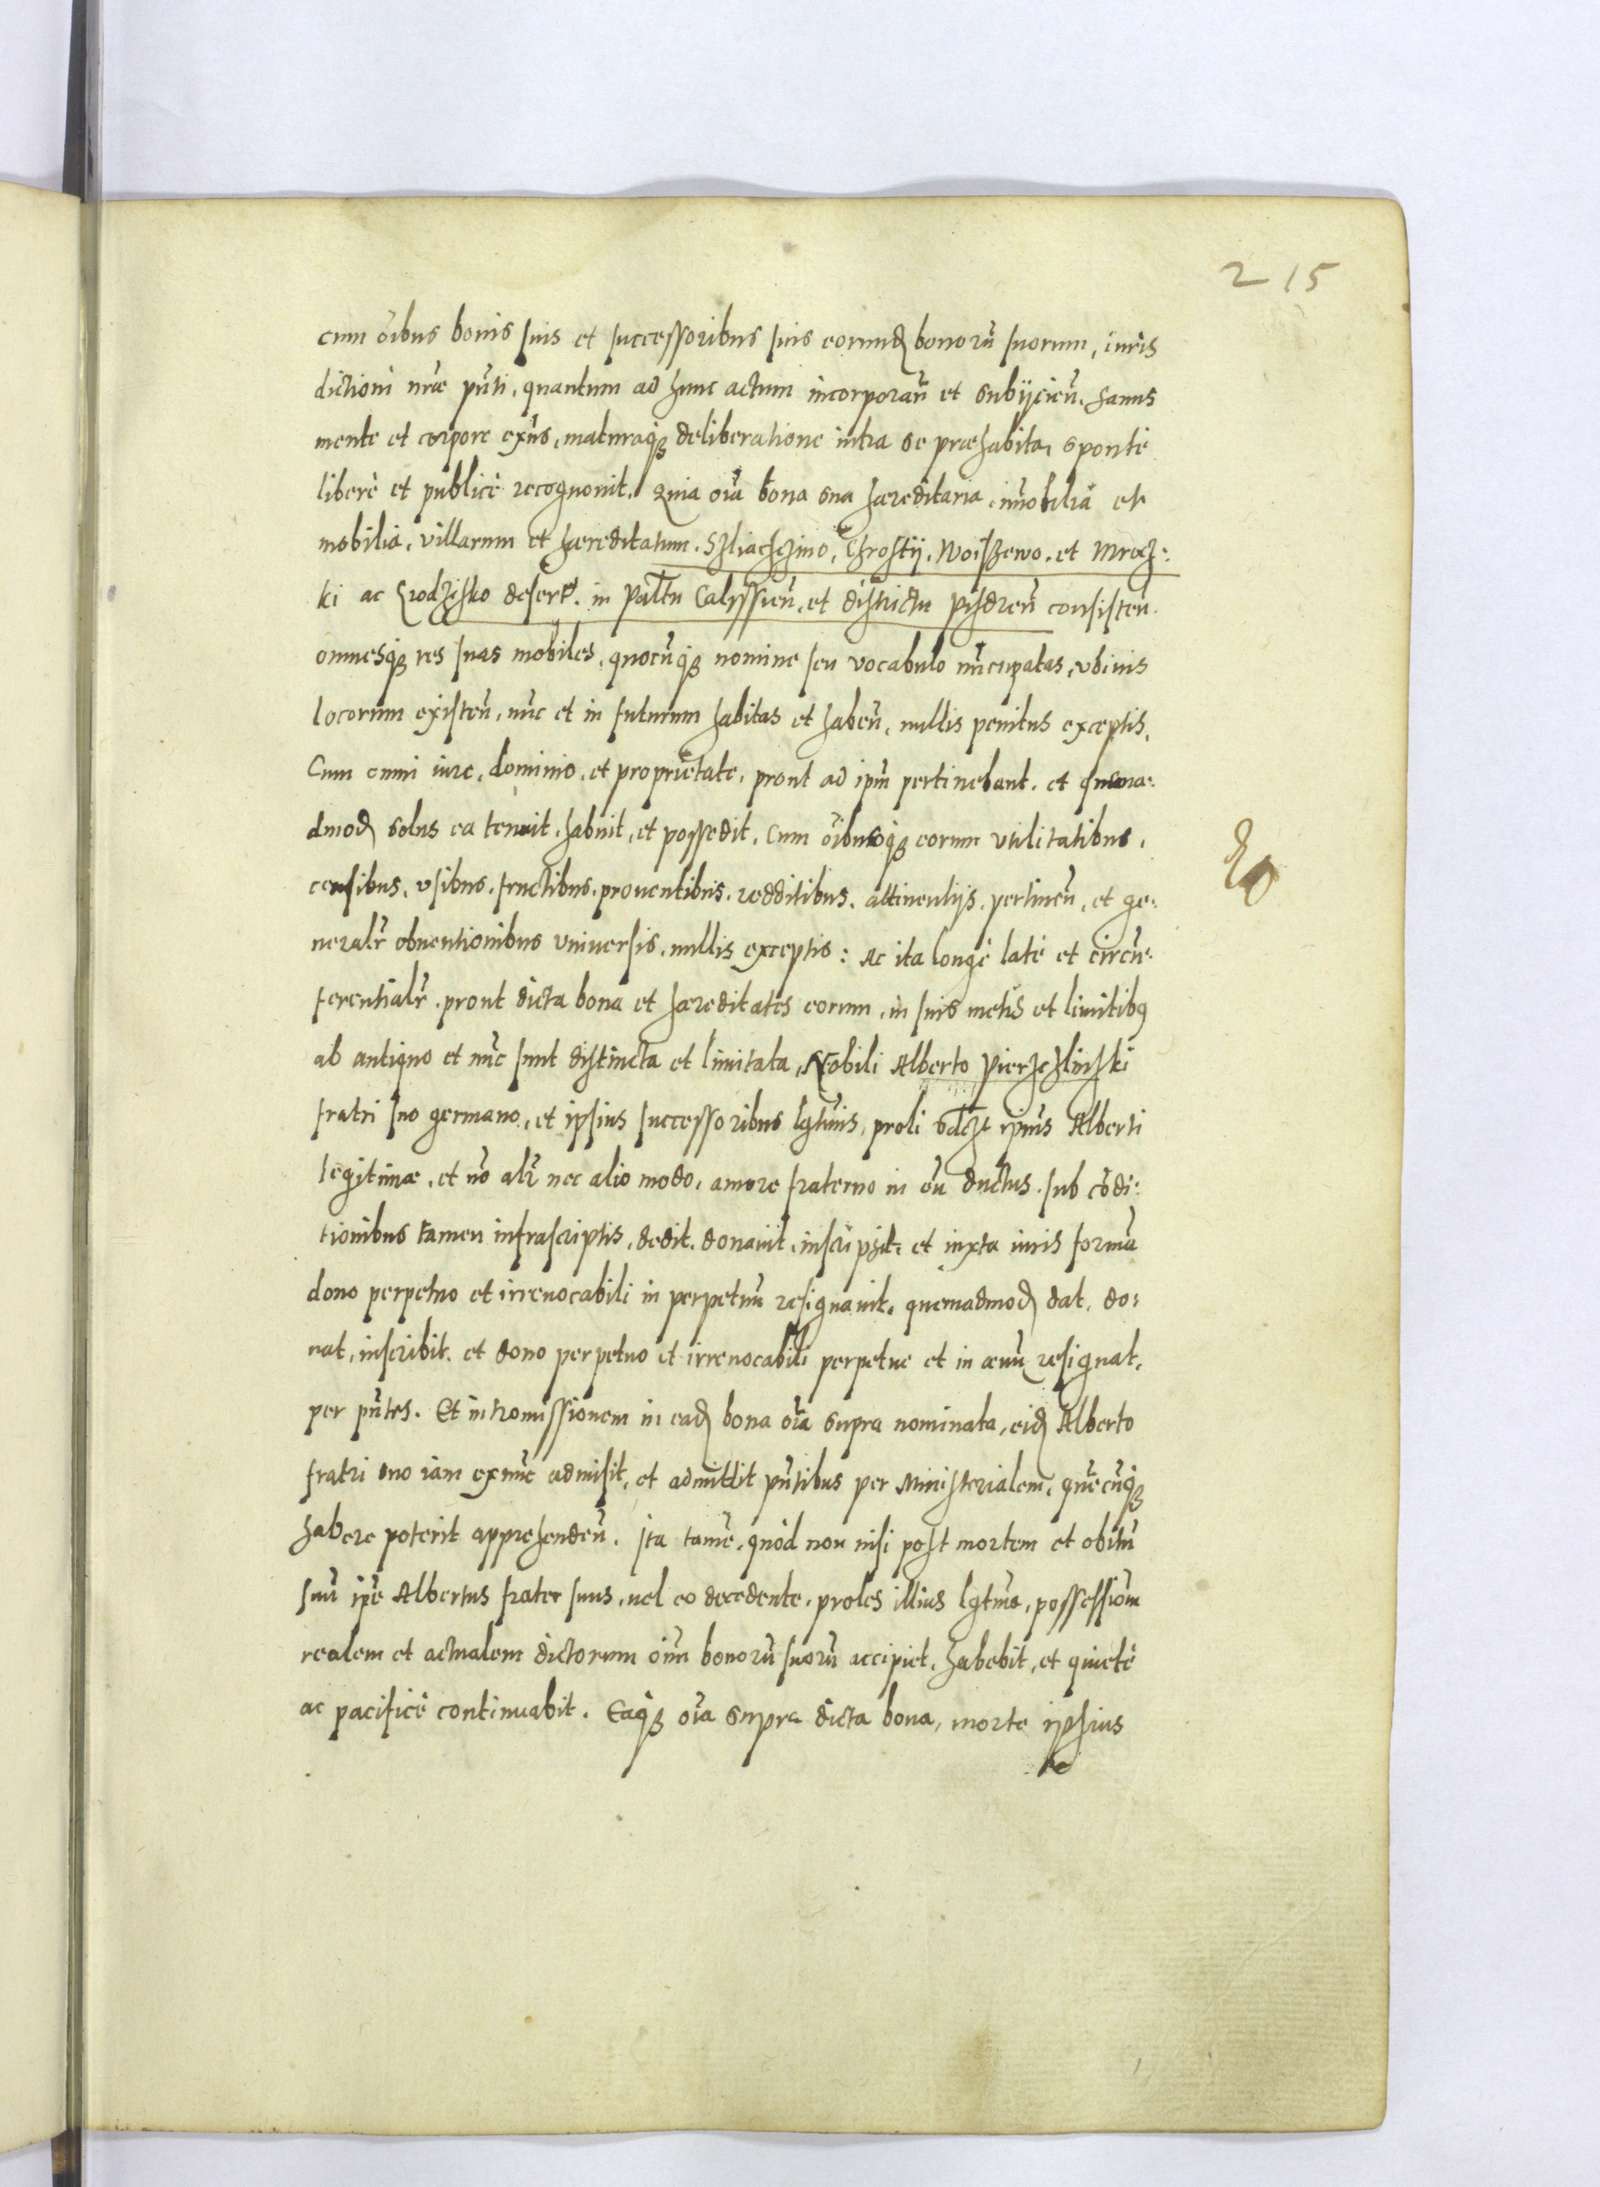 215
cum oibus bonis suis et successoribus suis eorundē bonorū suorum, iuris
dictioni nrae pūti, quantum ad hunc actum incorporan̄ et subijcien̄, sanus
mente et corpore exn̄s, maturaq; deliberatione intra se praehabita, sponte
liberè et publicè recognouit. Quia oīa bona sua haereditaria, im̄obilia et
mobilia, villarum et haereditatum. Szliachczino, Chrostij, Woiszewo, et Mrocz:
ki ac Grodzisko desert. in Paltu Calyssien̄, et districtu Pisdren̄ consisten̄.
omnesq; res suas mobiles, quocūq; nomine seu vocabulo nūcupatas, vbiuis
locorum existen̄, nūc et in futurum habitas et haben̄, nullis penitus exceptis,
Cum omni iure, dominio, et proprietate, prout ad ipm̄ pertinebant, et quema:
dmod solus ea tenuit, habuit, et possedit. Cum oībusq; eorum vtilitatibus,
censibus, vsibus, fructibus, prouentibus, redditibus, attinentijs, pertinen̄, et ge:
neralr obuentionibus vniuersis, nullis exceptis: Ac ita longè latè et circū:
ferentialr, prout dicta bona et haereditates eorum, in suis metis et limitibq
ab antiquo et nūc sunt distincta et limitata, Nobili Alberto Pierzchlinski
fratri suo germano, et ipsius successoribus lgtimis, proli ipius Alberti
legitimae, et nō alr nec alio modo, amore fraterno in eū ductus, sub cōdi:
tionibus tamen infrascriptis, dedit, donauit, inscripsit, et iuxta iuris formā
dono perpetuo et irreuocabili in perpetuū resignauit, quemadmod dat, do:
nat, inscribit, et dono perpetuo et irreuocabili perpetue et in aeuū resignat,
per pn̄tes. Et intromissionem in ead bona oīa supra nominata, eid Alberto
fratri suo iam exnūc admisit, et admittit pn̄tibus per Ministerialem, quēcūq;
habere poterit apprehenden̄. Ita tamē, quòd non nisi post mortem et obitū
suū ipē Albertus frater suus, uel eo decedente, proles illius lgtma, possessionm
realem et actualem dictorum oīm bonorū suorū accipiet, habebit, et quietè
ac pacificè continuabit. Eaq; oīa supra dicta bona, morte ipsius